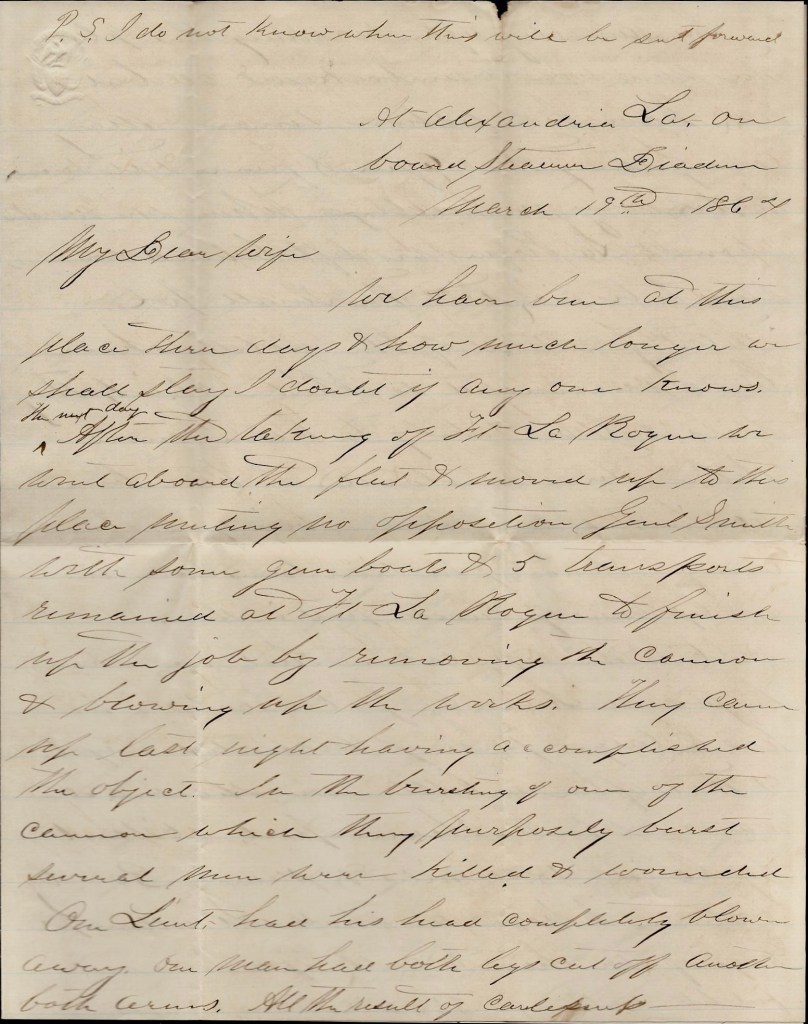 P. S. I do not know when this will be sent forward
At Alexandria La. on
board Steamer Diadem
March 19th 1864
My Dear Wife
We have been at this
place three days & how much longer we
shall stay I doubt if any one knows.
The next day
After the taking of Ft La Rogue we
went aboard the fleet & moved up to this
place meeting no opposition Genl Smith
with some gun boats & 5 transports
remained at Ft La Rogue to finish
up the job by removing the cannon
& blowing up the works. They came
up last night having accomplished
the object. In the bursting of one of the
cannon which they purposely burst
several men were killed & wounded
One Lieut. had his head completely blown
away one man had both legs cut off another
both arms. All the result of carlessness